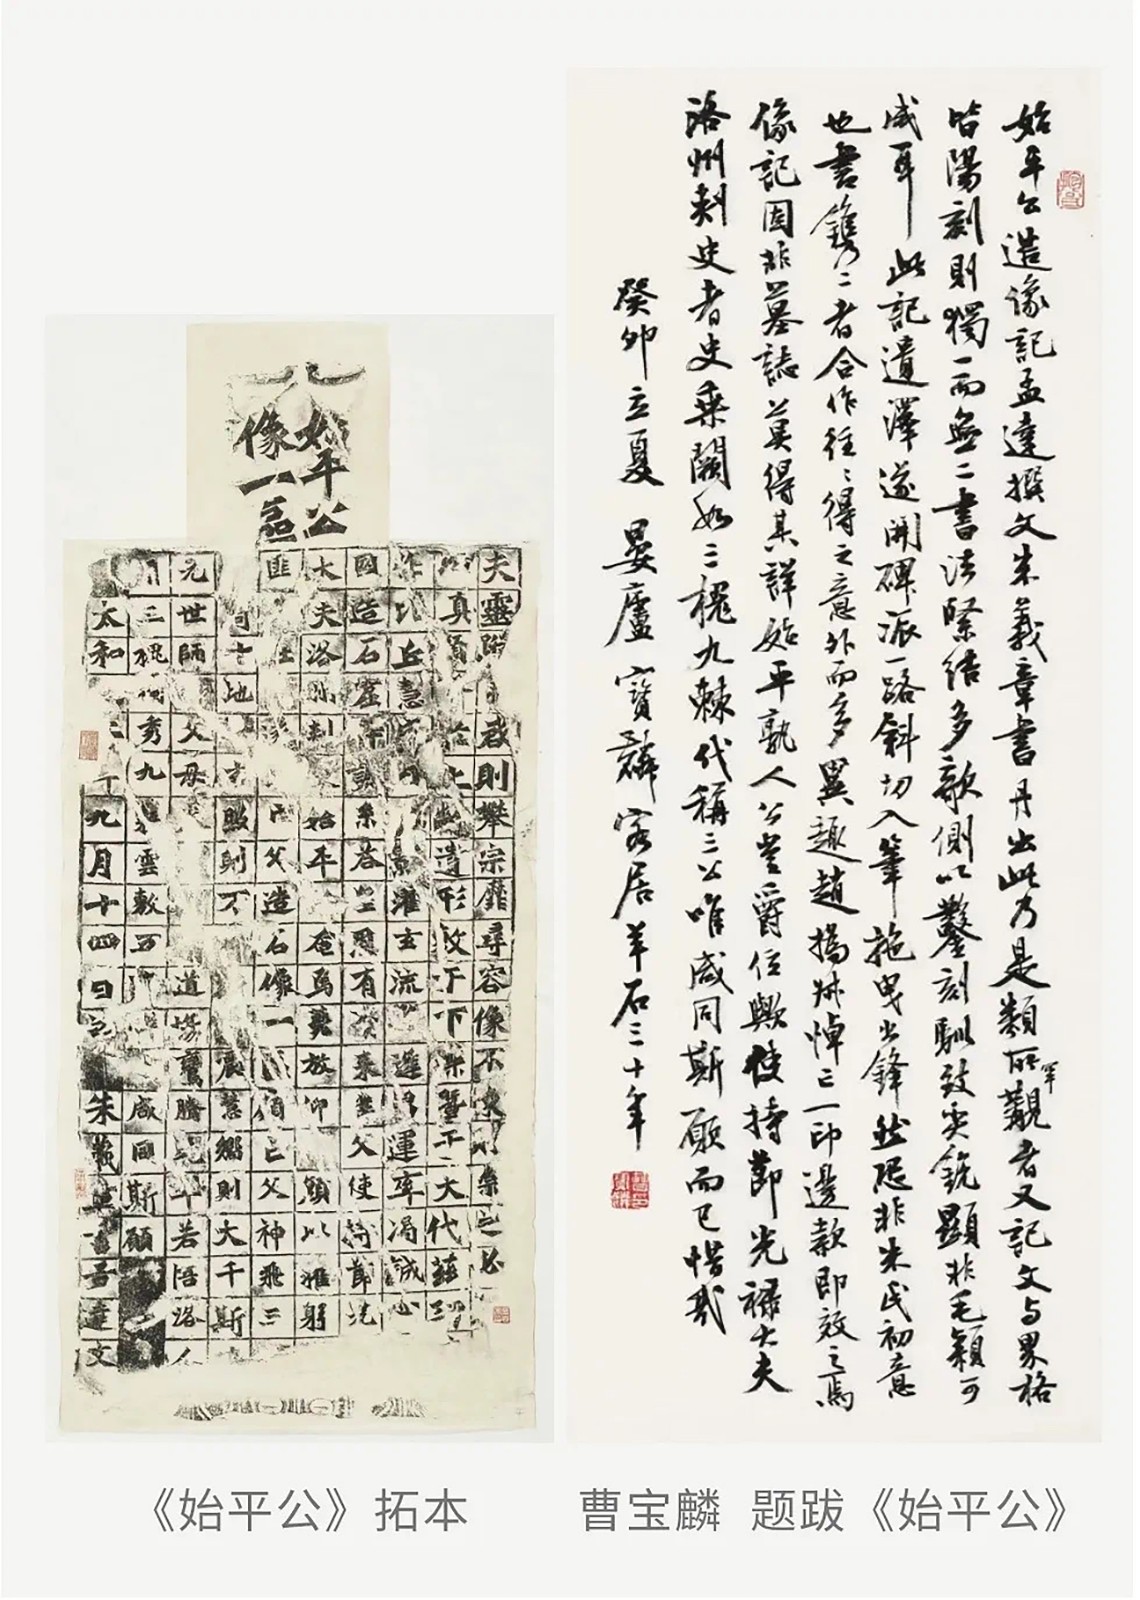 始平公
像一區
夫靈啟則攀宗靡尋容像不
真上遺形敷于下暨于大代茲
比丘慧玄流運率竭誠心
國造石窟系答皇恩有來父使持節光
大夫洛州刺始平奄焉薨放仰顏以摧躬
匪父造石像一願亡父神飛三
十地玄照則万震慧嚮則大千斯
元世師父母道場鸞騰若悟洛人
三槐秀九雲敷五咸同斯願
太和年九月十四日朱義章書孟達文
始平公造像記孟達撰文朱義章書丹出此乃是類所罕觀者又記文与界格
皆陽刻則獨一而無二書法緊結多欹側以鑿刻馴致尖銳顯非毛穎可
成耳此記遺澤遂開碑派一路斜切入筆拖曳出鋒然恐非朱氏初意
也書鐫二者合作往〻得之意外而多異趣趙撝叔悼亡一印邊款即效之焉
像記固非墓誌莫得其詳始平孰人公豈爵位歟使持節光祿大夫
洛州刺史者史乘闕如三槐九棘代稱三公唯咸同斯願而已惜哉
癸卯立夏 晏廬寶麟客居羊石三十年
《始平公》拓本
曹宝麟 题跋《始平公》